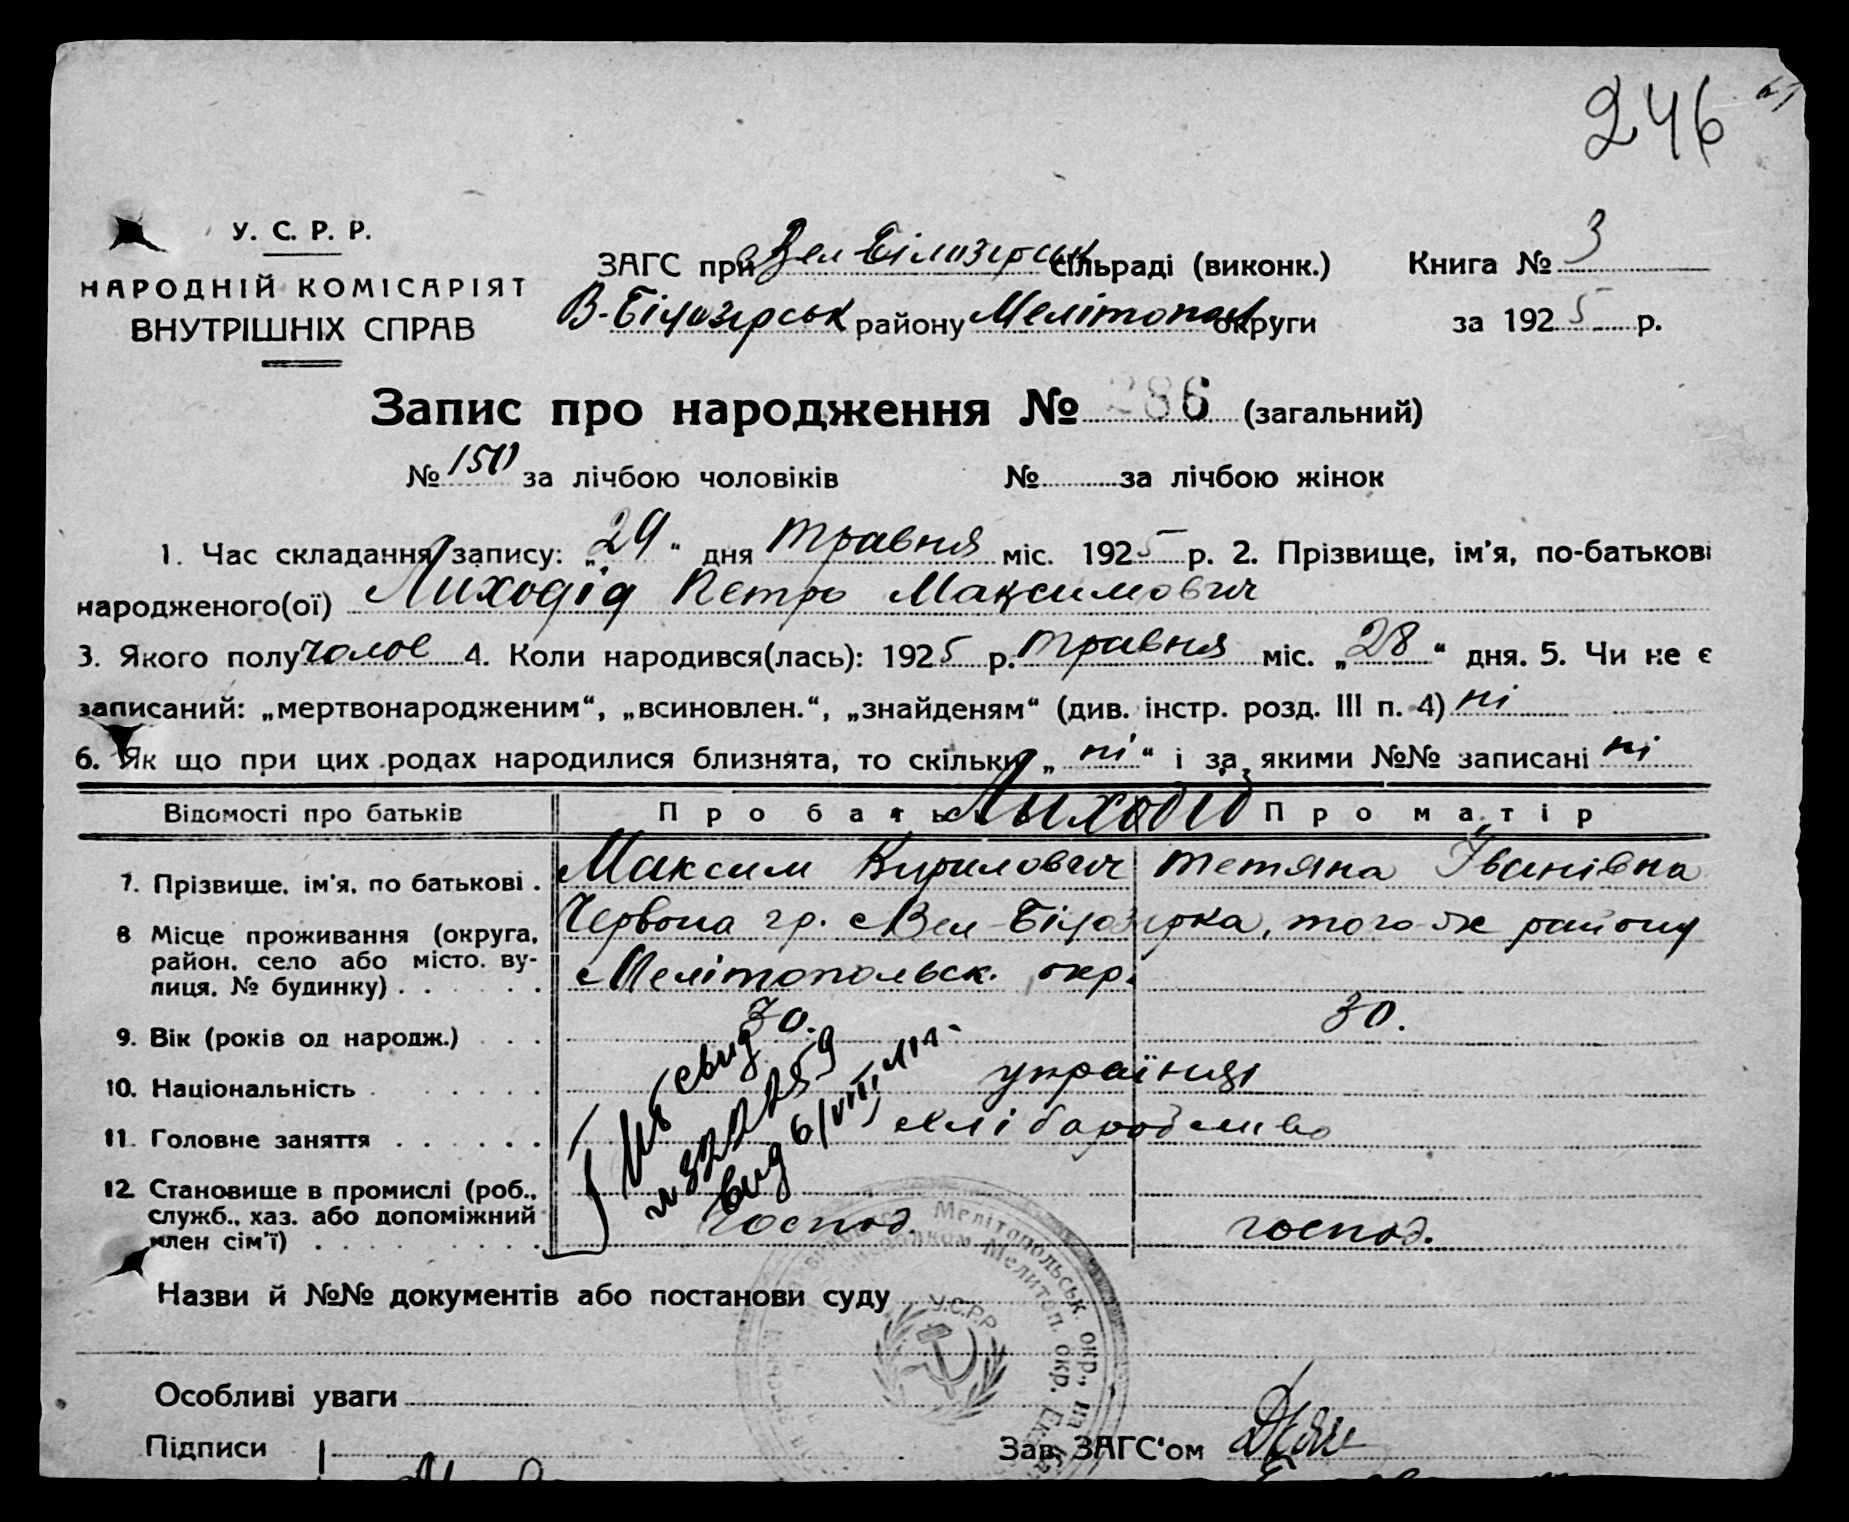 246
У. С. Р. Р.
НАРОДНІЙ КОМІСАРІЯТ
ВНУТРІШНІХ СПРАВ
ЗАГС при Вел-Білозірськ сільраді (виконк.)
В-Білозірськ району Мелітопол округи
Книга № 3
за 1925 р.
Запис про народження № 286 (загальний)
№ 150 за лічбою чоловіків № за лічбою жінок
1. Час складання запису: „29“ дня травня міс. 1925 р. 2. Прізвище, ім'я, по-батькові
народженого(ої) Лиходід Петро Максимович
3. Якого полу чолов 4. Коли народився(лась): 1925 р. травня міс. „28“ дня. 5. Чи не є
записаний: „мертвонародженим“, „всиновлен.“, „знайденям“ (див. інстр. розд. III п. 4) ні
6. Як що при цих родах народилися близнята, то скільки „ні“ і за якими №№ записані ні
Відомості про батьків Про батька Про матір
Лиходід
7. Прізвище, ім'я, по батькові . Максим Кирилович Тетяна Іванівна
8 Місце проживання (округа, район, село або місто, ву-лиця, № будинку) . . . . . Червона гр. с Вел-Білозірка, того-ж району
Мелітопольск. окр.
9. Вік (років од народж.) . . . 30. 30.
10. Національність . . . . . . українці
11. Головне заняття . . . . . . хліборобство
12. Становище в промислі (роб., служб., хаз. або допоміжний член сім'ї) . . . . . . . . . господ. господ.
свид
Назви й №№ документів або постанови суду
Особливі уваги
Підписи
Зав. ЗАГС'ом
Мелітопольськ. окр., на
Мелитоп. окр. Ек
У.С.Р.Р.